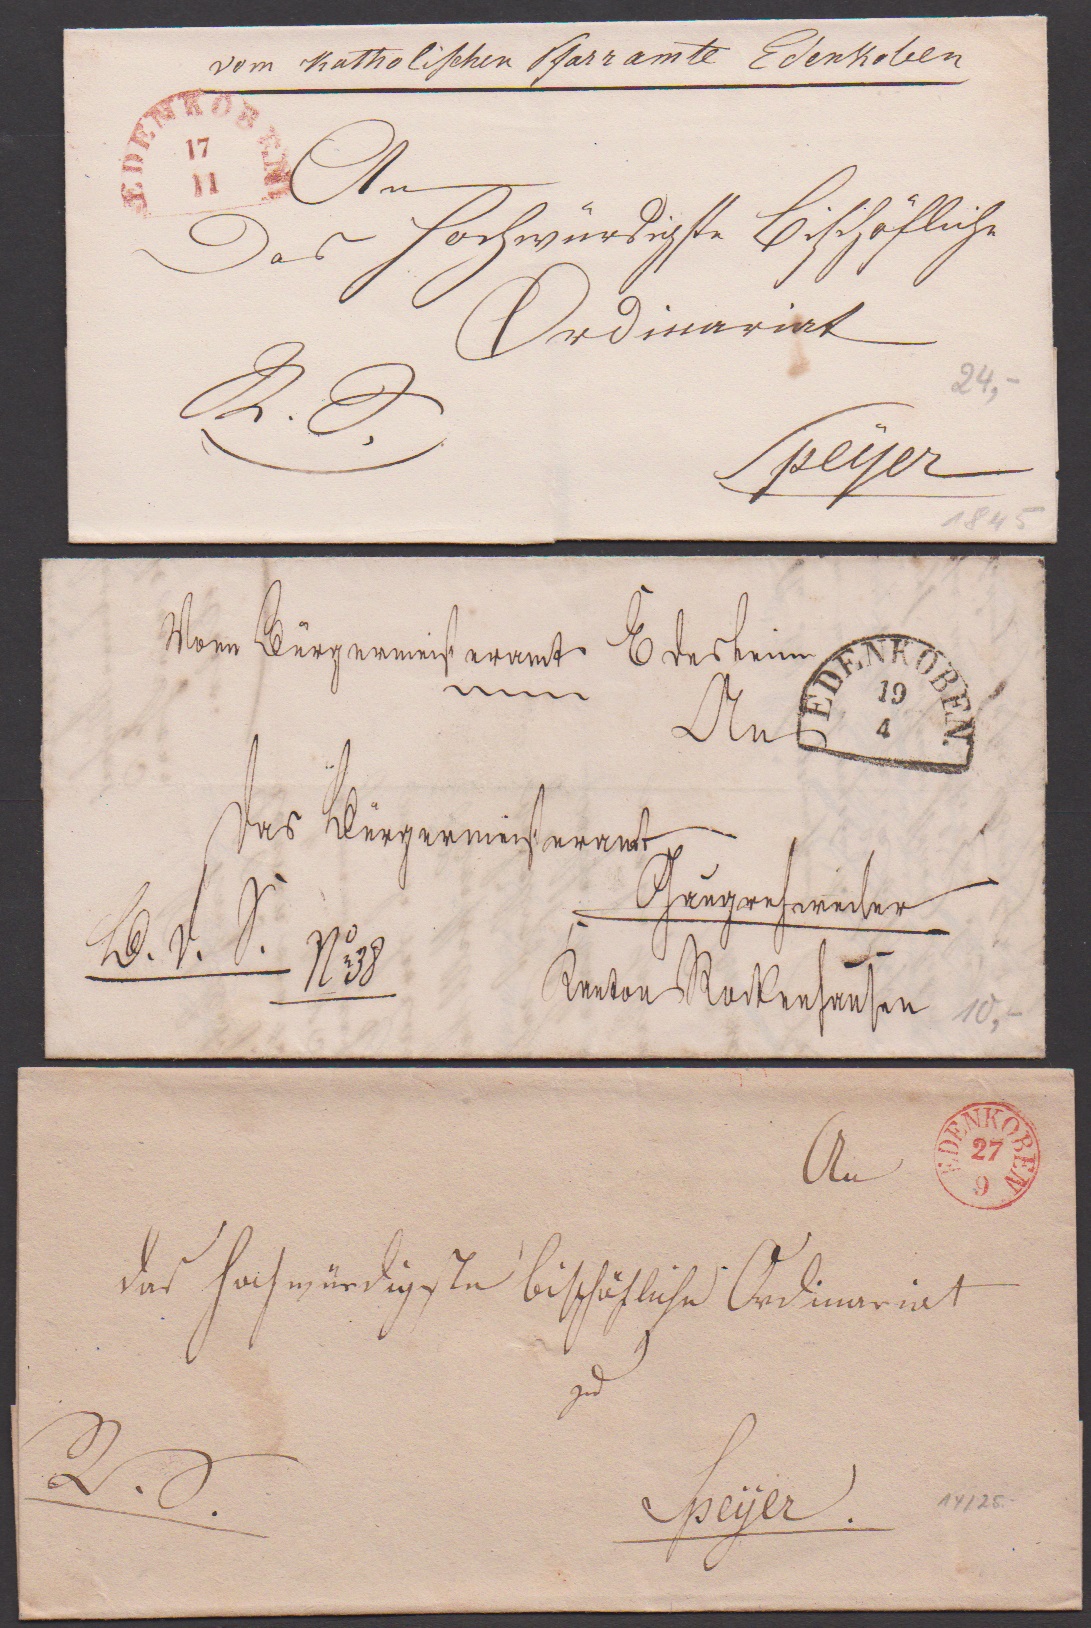 vom katholischen Pfarramte Edenkoben
EDENKOBEN
17
11
An
Das Hochwürdigste Bischöfliche
Ordinariat
R. S.
24,-
Speÿer
1845
Vom Bürgermeisteramt Edesheim
EDENKOBEN.
19
4
An
Das Bürgermeisteramt
Gaugrehweiler
R. S. No 38
Kanton Rockenhausen
10,-
EDENKOBEN
27
9
An
das hochwürdigste bischöfliche Ordinariat
zu
R. S.
Speÿer.
14/25-